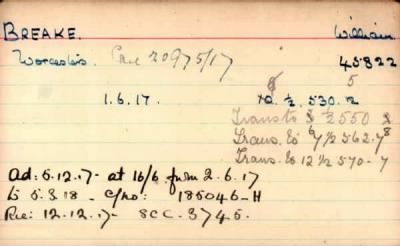 BREAKE. William
Worcesters. 20975/17 45822
5
1.6.17. ½.530.
Trans to ½550
Trans. to 7½ 562.
Trans. to 12½ 570-7
Ad: 5.12.17- at 16/6 from 2.6.17
to 5.3.18. c/no: 185046-H
Rec: 12.12.17- SCC.3745.